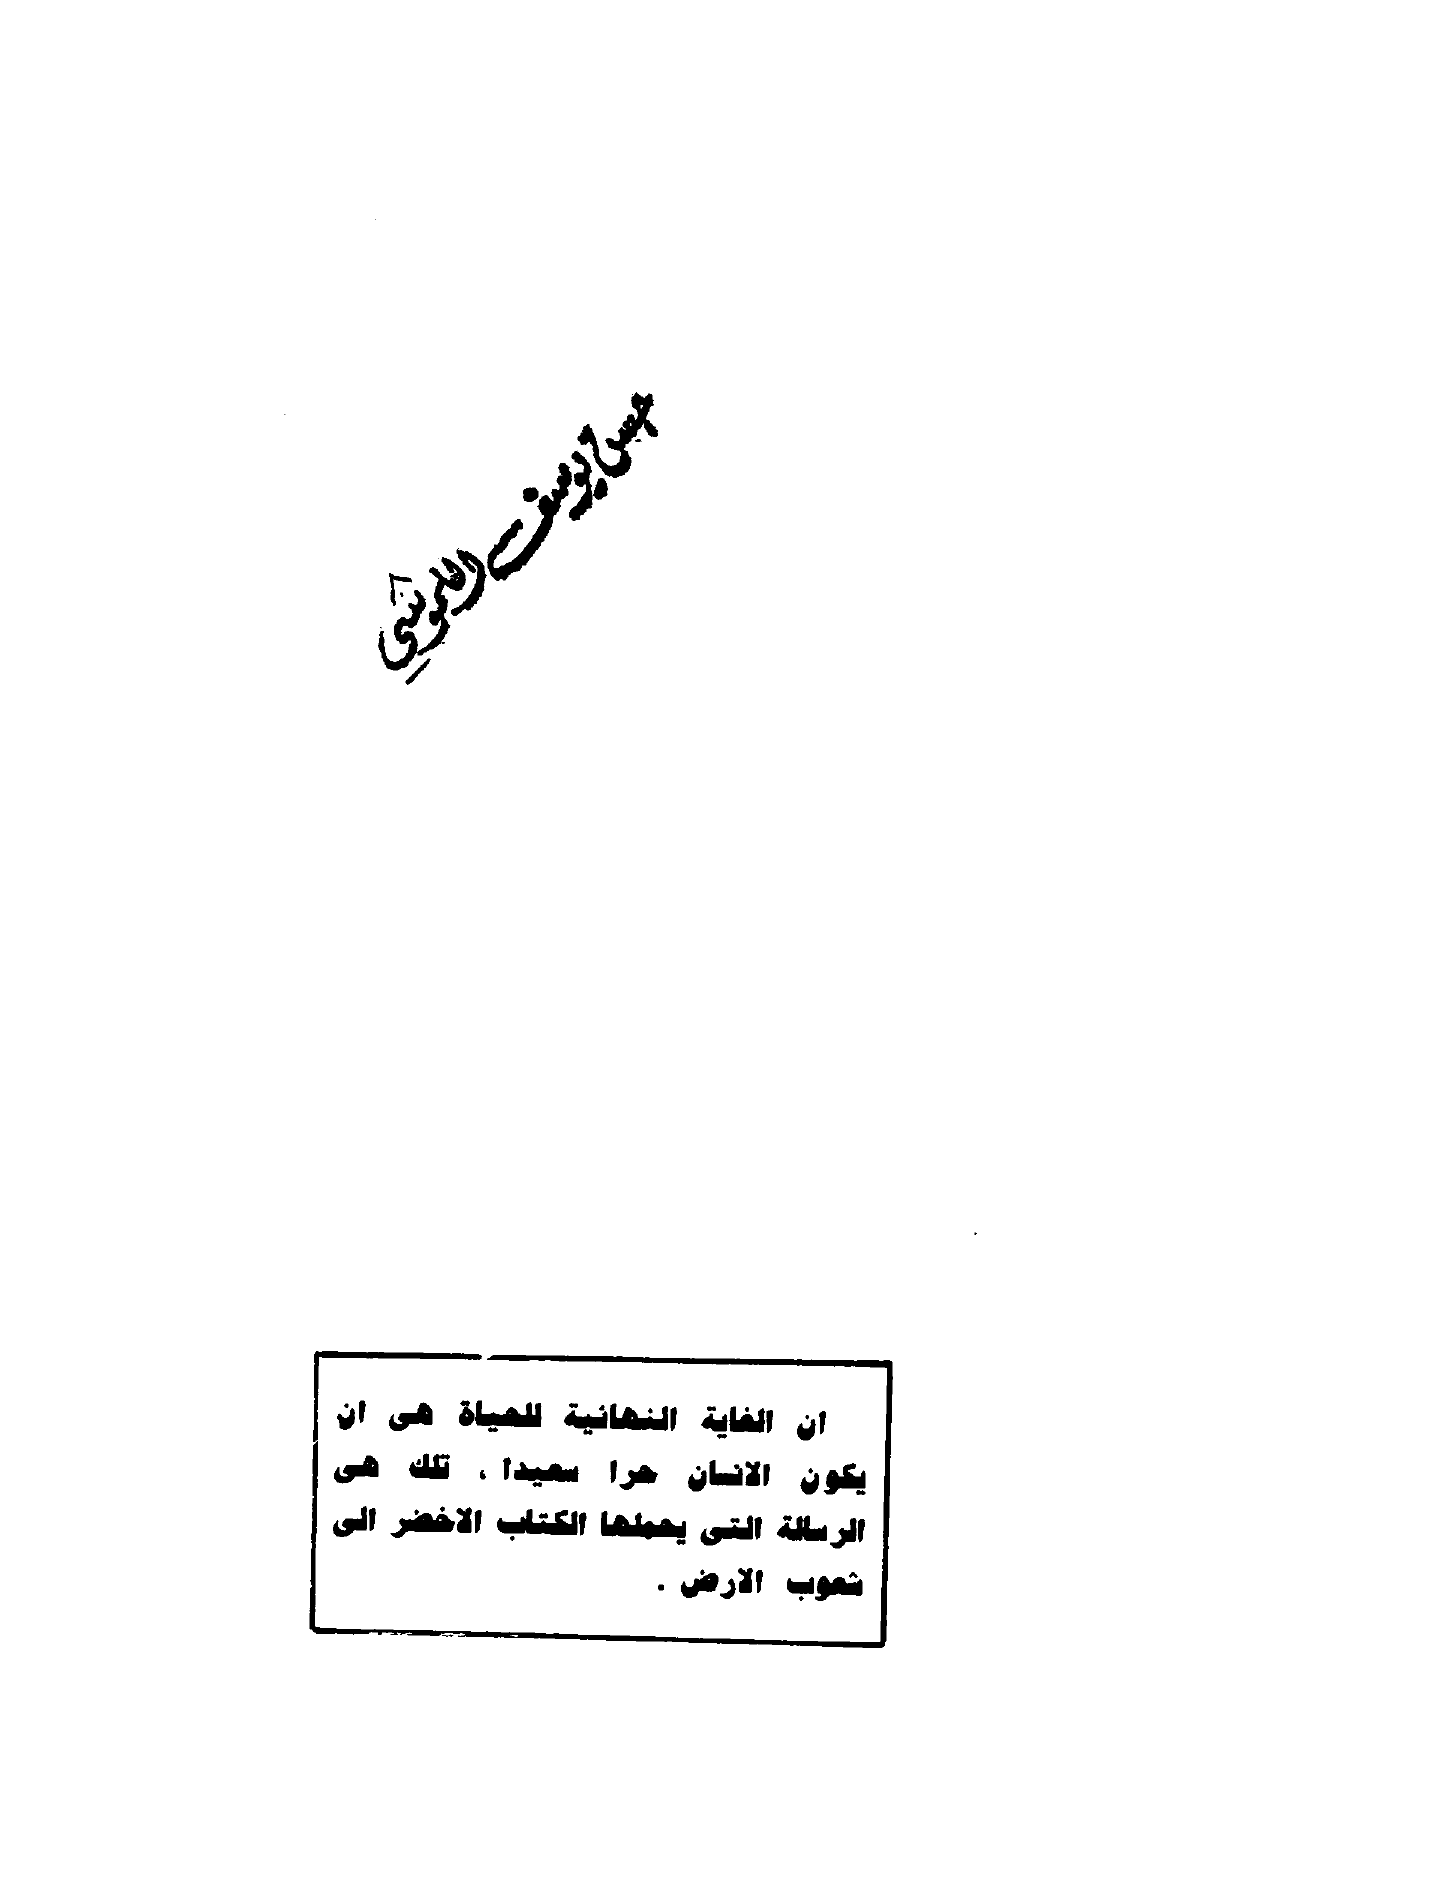 يوسف
ان الغاية النهائية للحياة هى ان
يكون الانسان حرا سعيدا ، تلك هى
الرسالة التى يحملها الكتاب الاخضر الى
شعوب الارض .